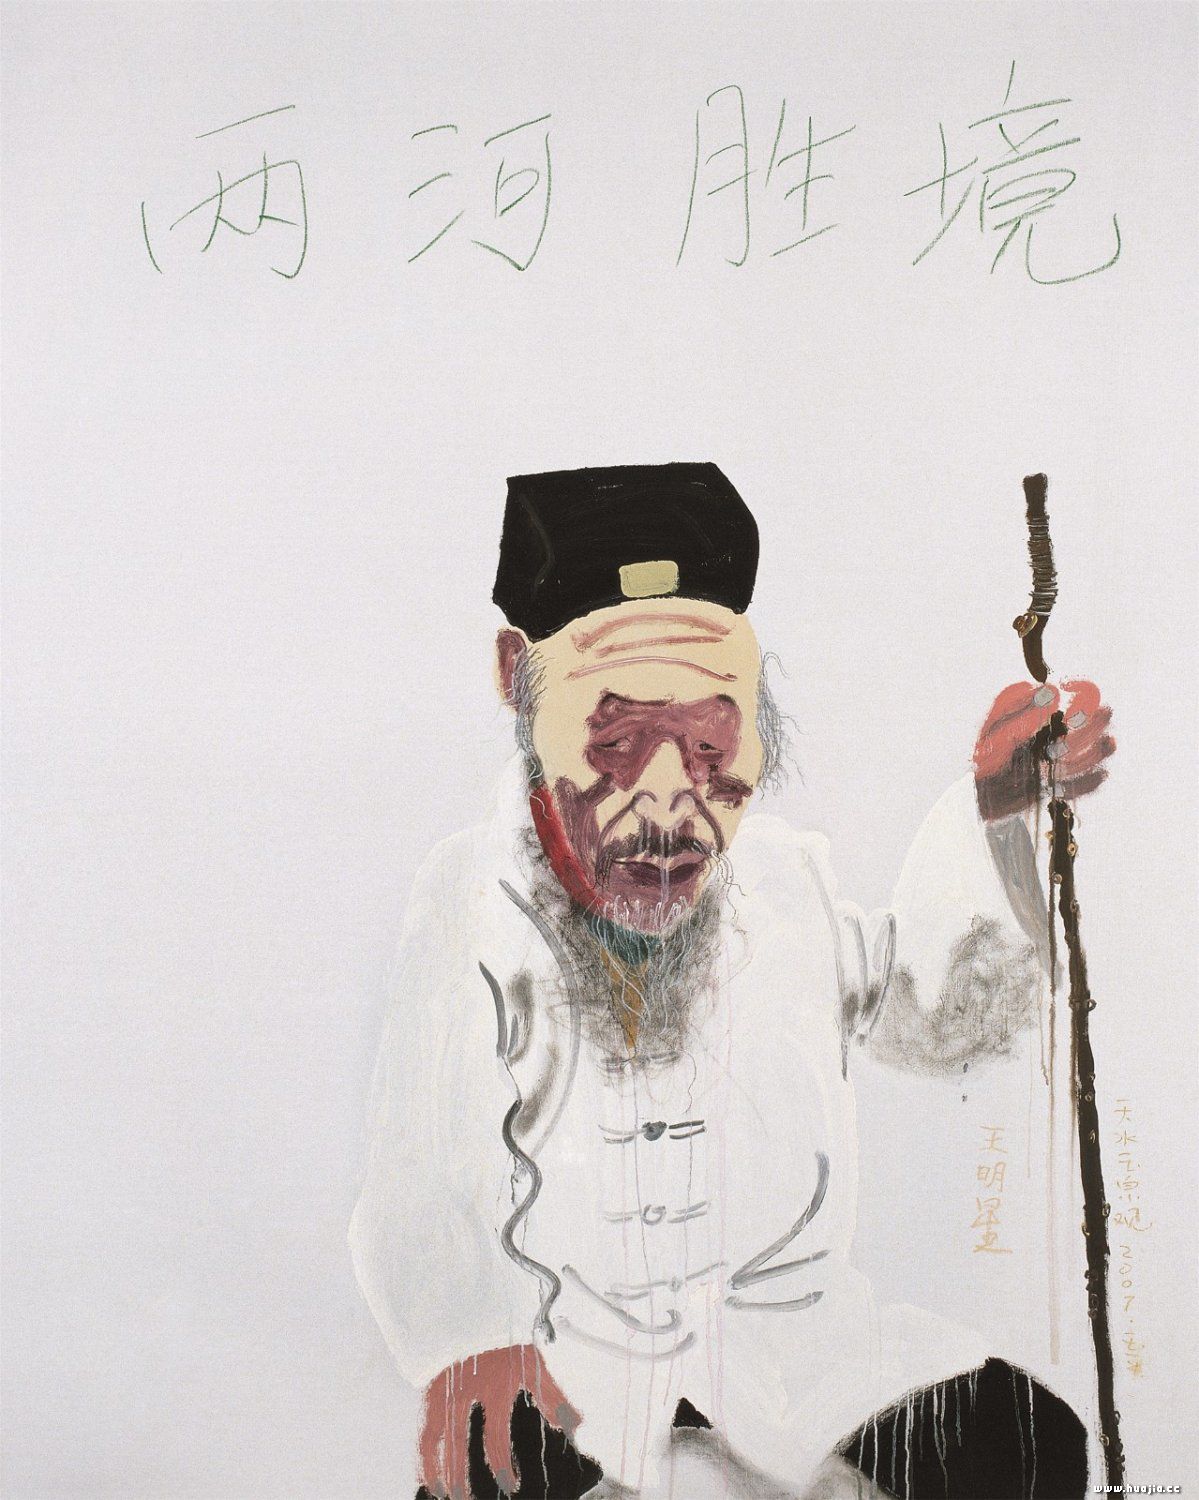 两河胜境
王明星
天水玉泉观 2007.
www.huajia.cc